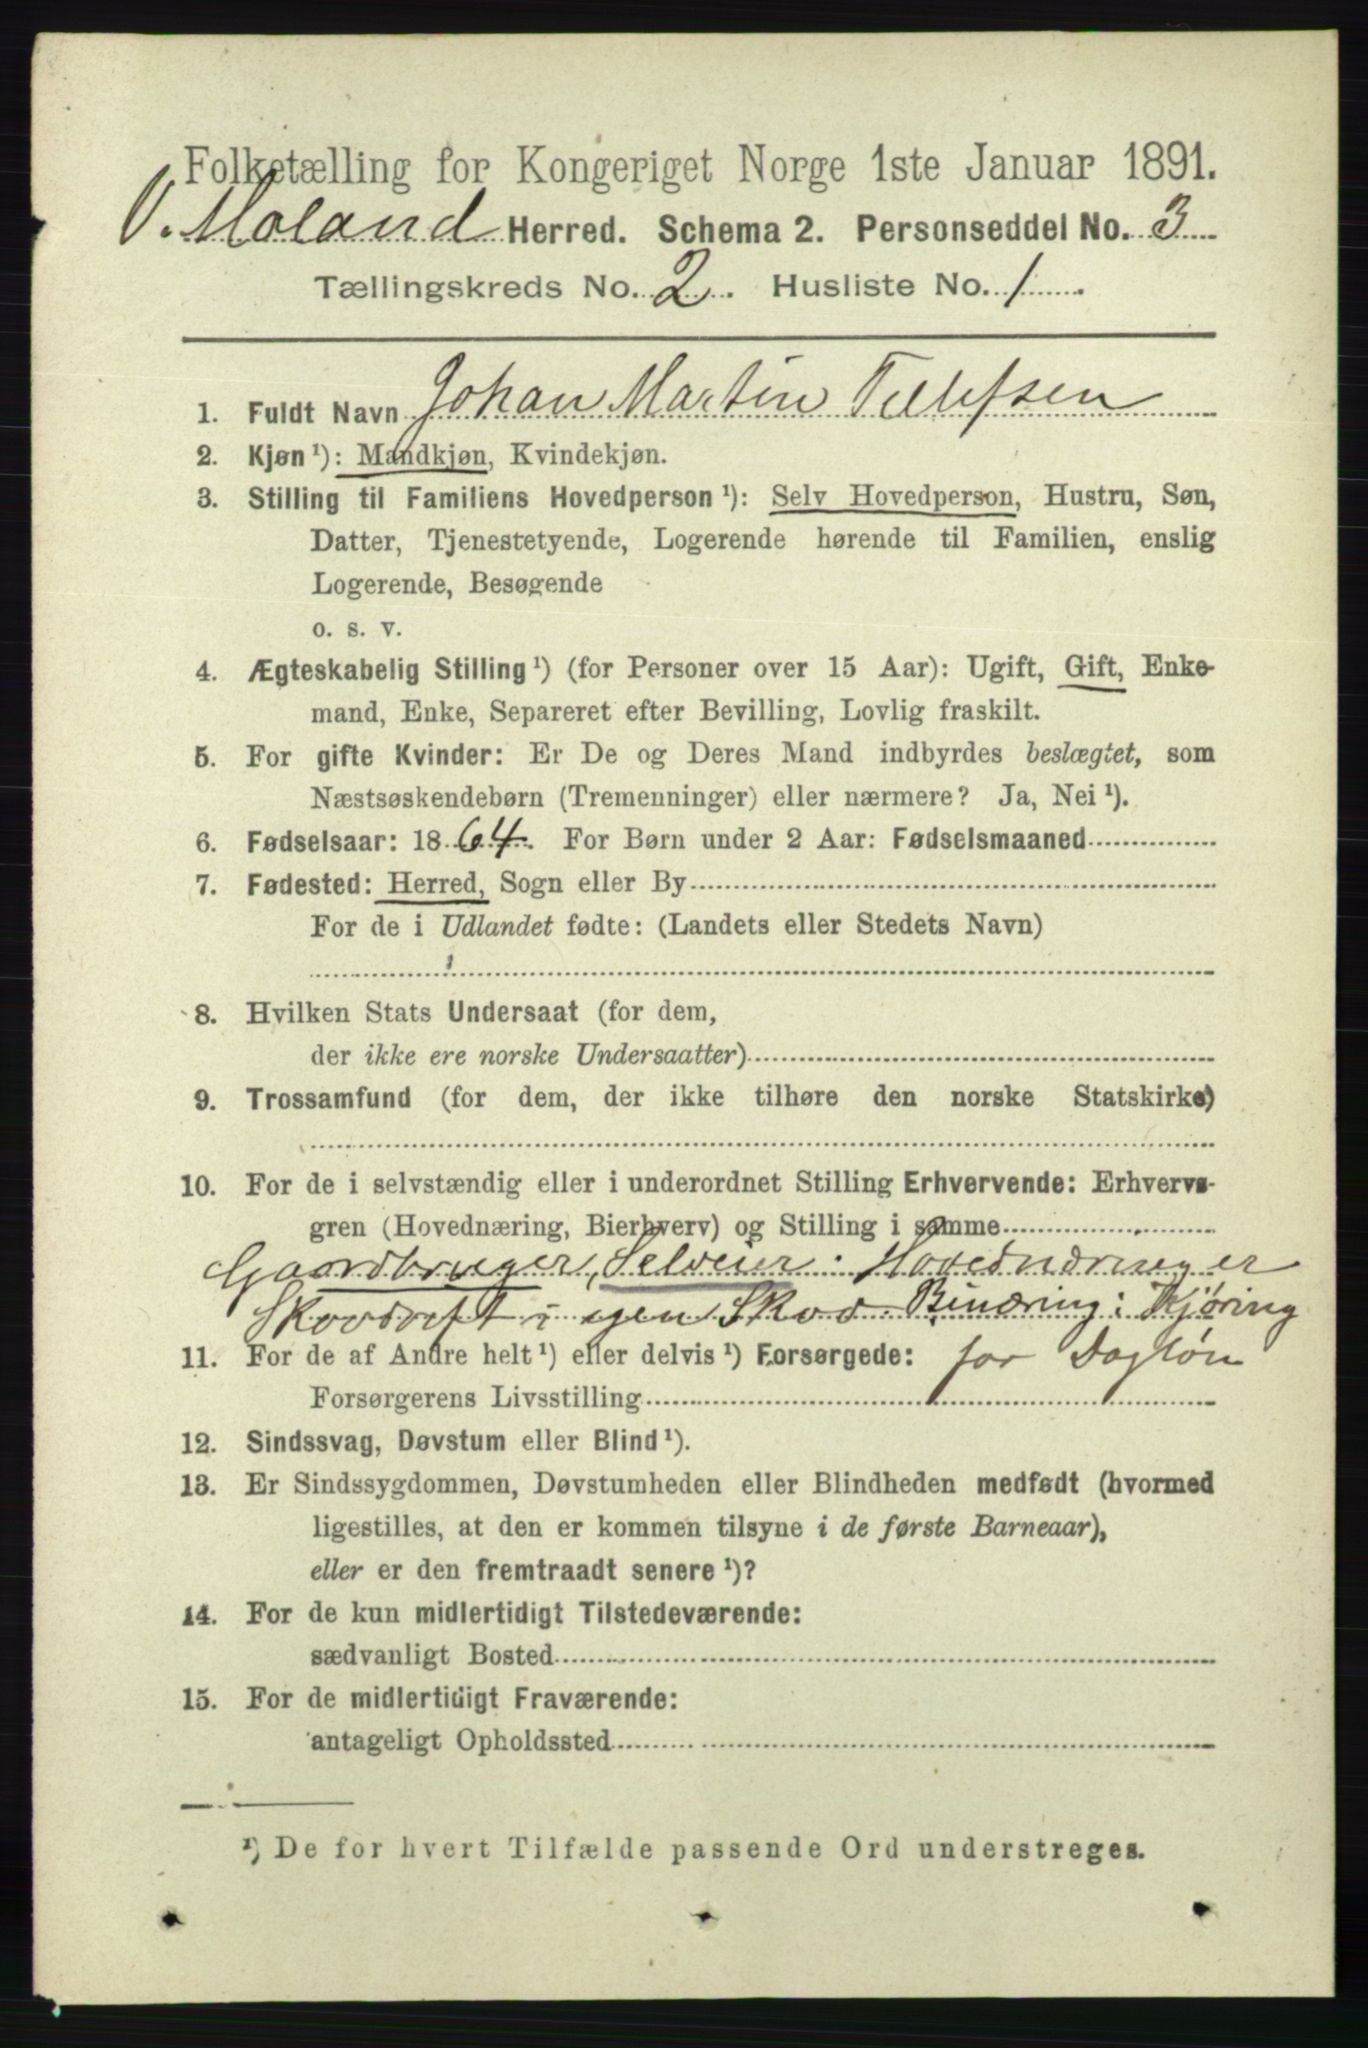 Folketælling for Kongeriget Norge 1ste Januar 1891.
V. Moland Herred. Schema 2. Personseddel No. 3
Tællingskreds No. 2. Husliste No. 1.
1. Fuldt Navn Johan Martin Tellefsen
2. Kjøn ¹): Mandkjøn, Kvindekjøn.
3. Stilling til Familiens Hovedperson ¹): Selv Hovedperson, Hustru, Søn,
Datter, Tjenestetyende, Logerende hørende til Familien, enslig
Logerende, Besøgende
o. s. v.
4. Ægteskabelig Stilling ¹) (for Personer over 15 Aar): Ugift, Gift, Enke-
mand, Enke, Separeret efter Bevilling, Lovlig fraskilt.
5. For gifte Kvinder: Er De og Deres Mand indbyrdes beslægtet, som
Næstsøskendebørn (Tremenninger) eller nærmere? Ja, Nei ¹).
6. Fødselsaar: 1864. For Børn under 2 Aar: Fødselsmaaned
7. Fødested: Herred, Sogn eller By
For de i Udlandet fødte: (Landets eller Stedets Navn)
8. Hvilken Stats Undersaat (for dem,
der ikke ere norske Undersaatter)
9. Trossamfund (for dem, der ikke tilhøre den norske Statskirke)
10. For de i selvstændig eller i underordnet Stilling Erhvervende: Erhvervs-
gren (Hovednæring, Bierhverv) og Stilling i samme
Gaardbruger, Selveier. Hovednæring er
Skovdrift i egen Skov. Binæring: Kjøring
11. For de af Andre helt ¹) eller delvis ¹) Forsørgede: for Dagløn
Forsørgerens Livsstilling
12. Sindssvag, Døvstum eller Blind ¹).
13. Er Sindssygdommen, Døvstumheden eller Blindheden medfødt (hvormed
ligestilles, at den er kommen tilsyne i de første Barneaar),
eller er den fremtraadt senere ¹)?
14. For de kun midlertidigt Tilstedeværende:
sædvanligt Bosted
15. For de midlertidigt Fraværende:
antageligt Opholdssted
¹) De for hvert Tilfælde passende Ord understreges.